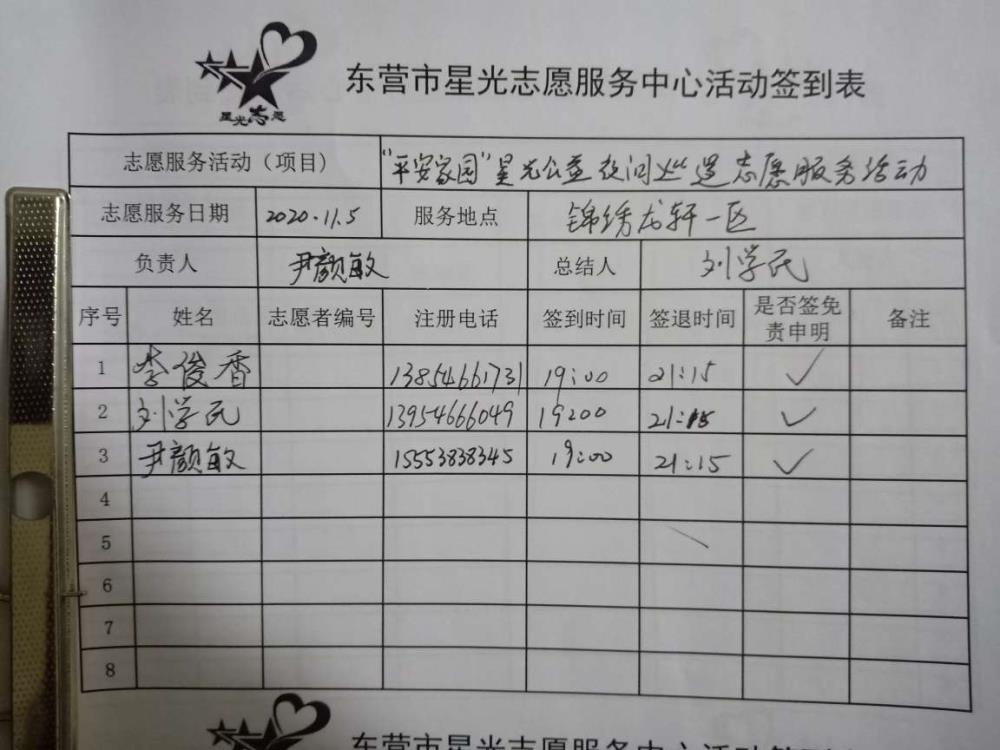 星光志愿
东营市星光志愿服务中心活动签到表
志愿服务活动（项目） "平安家园"星光公益夜间巡逻志愿服务活动
志愿服务日期 2020.11.5 服务地点 锦绣龙轩一区
负责人 尹颜敏 总结人 刘学民
序号 姓名 志愿者编号 注册电话 签到时间 签退时间 是否签免责申明 备注
1 李俊香 13854661731 19:00 21:15 ✓
2 刘学民 13954666049 19:00 21:15 ✓
3 尹颜敏 15553838345 19:00 21:15 ✓
4
5
6
7
8
东营市星光志愿服务中心活动签到表